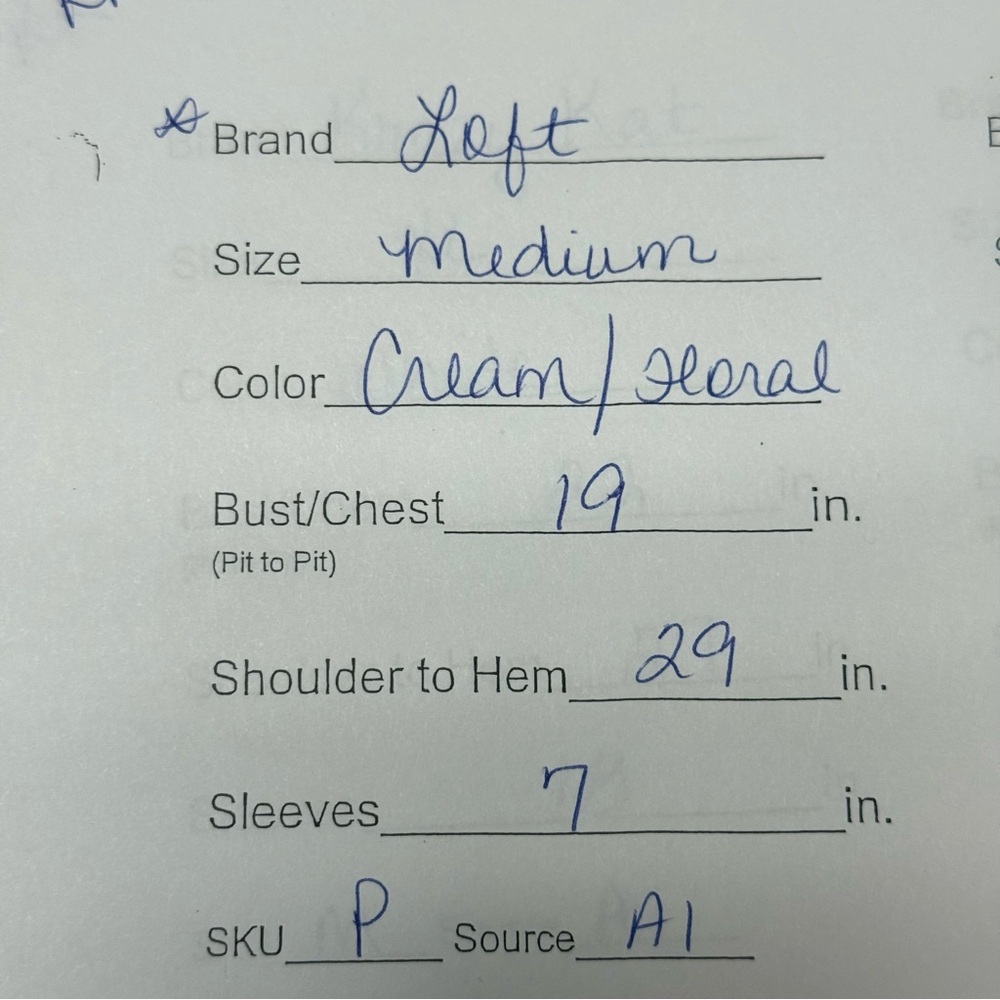 Brand Loft
Size Medium
Color Cream/Floral
Bust/Chest 19 in.
(Pit to Pit)
Shoulder to Hem 29 in.
Sleeves 7 in.
SKU P Source A1